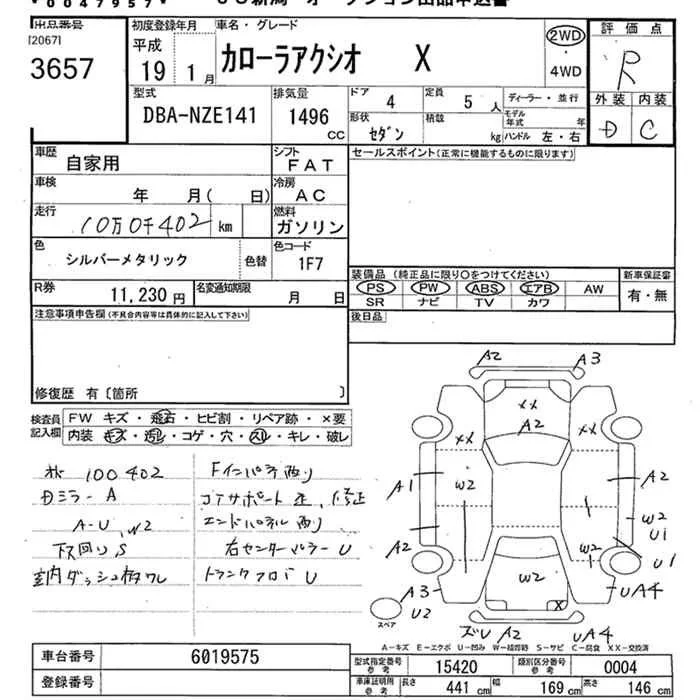 *0047957*
出品番号 初度登録年月 車名・グレード 2WD 評価点
[2067]
3657 平成 19 1月 カローラアクシオ X ・ 4WD R
型式 排気量 ドア 4 定員 5人 ディーラー・並行 外装 内装
DBA-NZE141 1496 CC 形状 セダン 積載 kg モデル年式 年 ハンドル 左・右 D C
車歴 自家用 シフト FAT セールスポイント(正常に機能するものに限ります)
車検 年 月( 日) 冷房 AC
走行 10万0千402 km 燃料 ガソリン
色 シルバーメタリック 色替 色コード 1F7
装備品 (純正品に限り○をつけてください) 新車保証書
R券 11,230円 名変通知期限 月 日 PS PW ABS エアB AW 有・無
SR ナビ TV カワ
注意事項申告欄(不具合内容等は具体的に記入して下さい) 後日品
修復歴 有〔箇所 〕
検査員記入欄 FW キズ・飛石・ヒビ割・リペア跡・×要
内装 キズ・汚レ・コゲ・穴・スレ・キレ・破レ
100402
Dミラー A
A-U、W2
下回りS
室内ダッシュ板ワレ
Fインパネ両り
コアサポート 歪、修正
エンドパネル両り
右センターピラー U
トランクフロア U
A2 A3
XX
A2
XX XX
A1 W2 A2
W2
U1
A2 W2 U1
A3 W2 UA4
U2 X
スペア ズレ A2 UA4
A-キズ E-エクボ U-凹み W-補修跡 S-サビ C-腐食 XX-交換済
車台番号 6019575 型式指定番号 参考 15420 類別区分番号 参考 0004
登録番号 車庫証明用 参考 長さ 441cm 幅 169cm 高さ 146cm